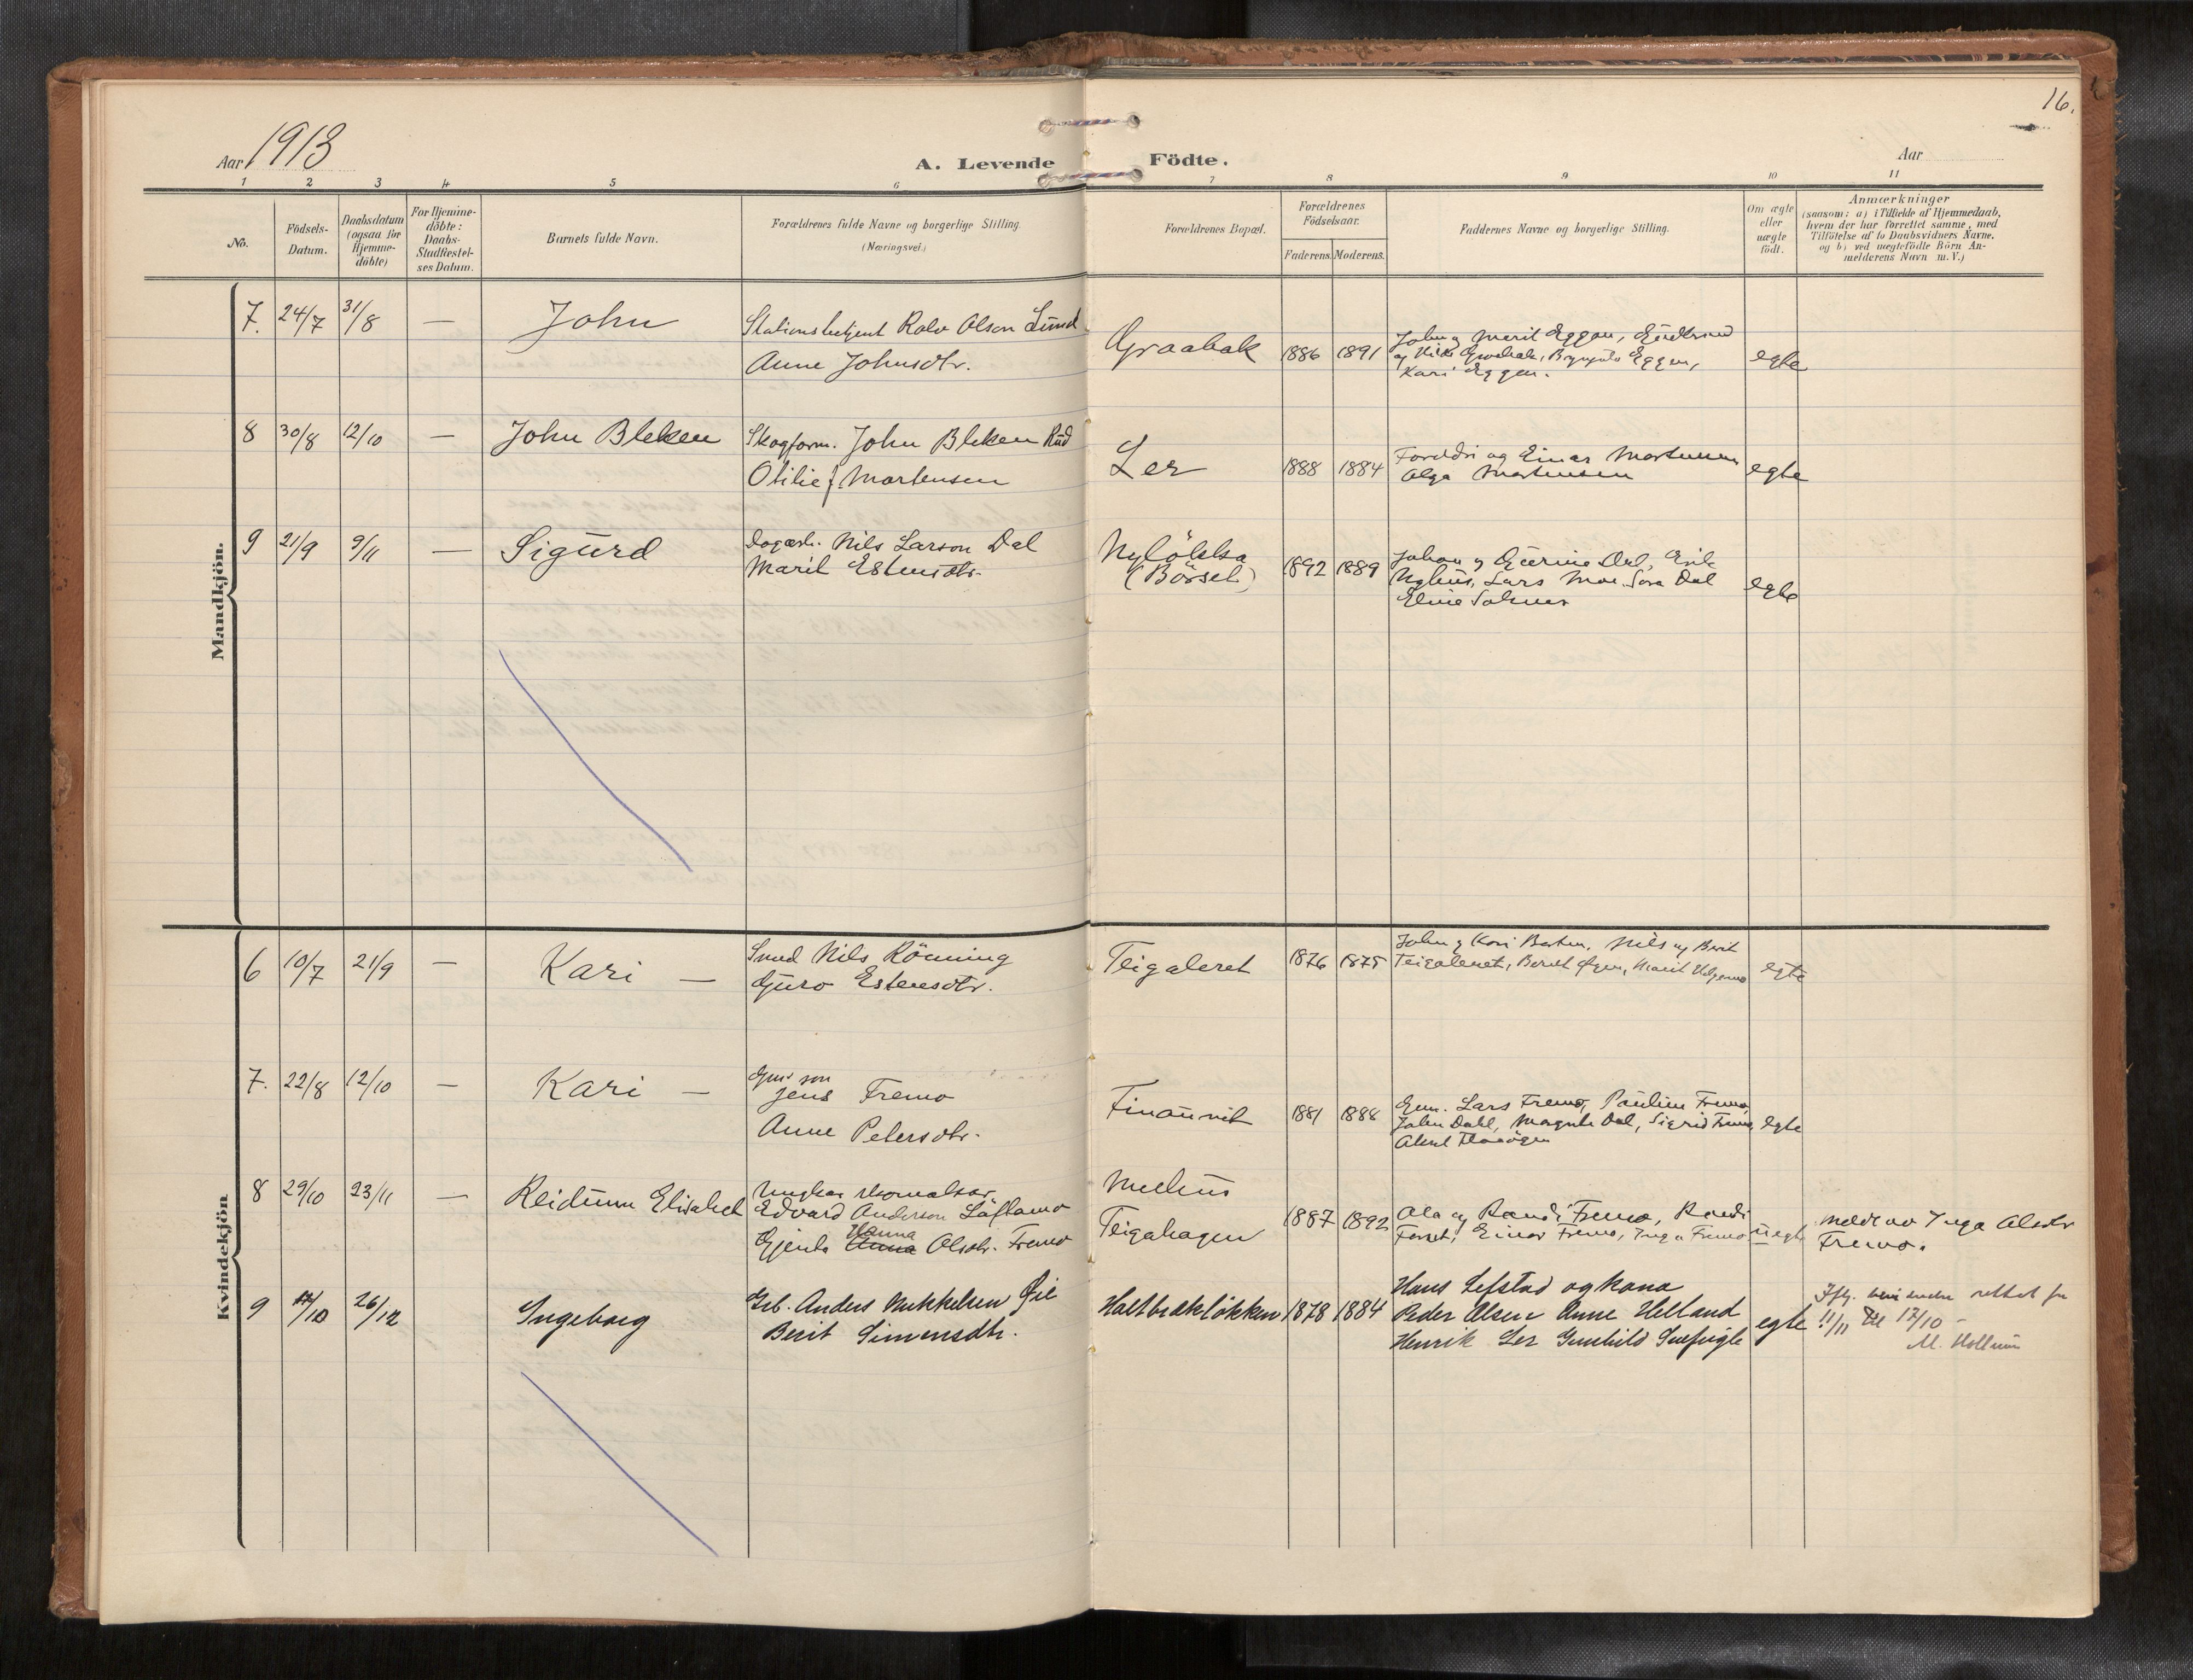 16.
Aar 1913
A. Levende Födte.
Aar
1 2 3 4 5 6 7 8 9 10 11
No.
Födsels-
Datum.
Daabsdatum
(ogsaa for
Hjemme-
döbte)
For Hjemme-
döbte:
Daabs-
Stadfæstel-
ses Datum.
Barnets fulde Navn.
Forældrenes fulde Navne og borgerlige Stilling.
(Næringsvei.)
Forældrenes Bopæl.
Forældrenes
Födselsaar.
Faderens. Moderens.
Faddernes Navne og borgerlige Stilling.
Om ægte
eller
uægte
födt.
Anmærkninger
(saasom: a) i Tilfælde af Hjemmedaab,
hvem der har forrettet samme, med
Tilföielse af to Daabsvidners Navne,
og b) ved uægtefödte Börn An-
melderens Navn m. V.)
Mandkjön.
7. 24/7 31/8 — John
Stationsbetjent Rolv Olson Lund
Anne Johnsdtr.
Graabak 1886 1891
John og Marit Eggen,
Graabak, Eggen,
Kari Eggen.
egte
8 30/8 12/10 — John Bleken
Skogform. John Bleken Rud
Otilie f. Mortensen
Ler 1888 1884
Foreldri og Einar Mortensen
Olga Mortensen
egte
9 21/9 9/11 — Sigurd
Dagarb. Nils Larson Dal
Marit Estensdtr.
Nyløkka
(Börsel.)
1892 1889
Johan og Gurine Dal, Erik
Nyhus, Lars Moe Dal
egte
Kvindekjön
6 10/7 21/9 — Kari —
Smed Nils Rönning
Guro Estensdtr.
Teigaleret 1876 1875
John og Kari Nils og Berit
Teigaleret, Marit
egte
7. 22/8 12/10 — Kari —
Jens Fremo
Anne Petersdtr.
1881 1888
Gm. Lars Fremo, Pauline Fremo,
John Dahl, Magnhi Dal, Sigrid Fremo
egte
8 29/10 23/11 — Reidunn Elisabet
Ungkar
Edvard Anderson Löflamo
Gjenta Hanna Anna Olsdtr. Fremo
Melhus
Teigahagen
1887 1892
Ola og Randi Fremo, Randi
Forset, Einar Fremo, Inga Fremo
uegte
Meldt av Inga Olsdtr
Fremo.
9 17/10 26/12 Ingeborg
Grb. Anders Mikkelsen Øie
Berit Simensdtr.
Haltbakløkken 1878 1884
Hans Lefstad og kona
Peder Olsen Anne Helland
Henrik Ler Gunhild
egte
rettet fra
11/11 til 17/10 –